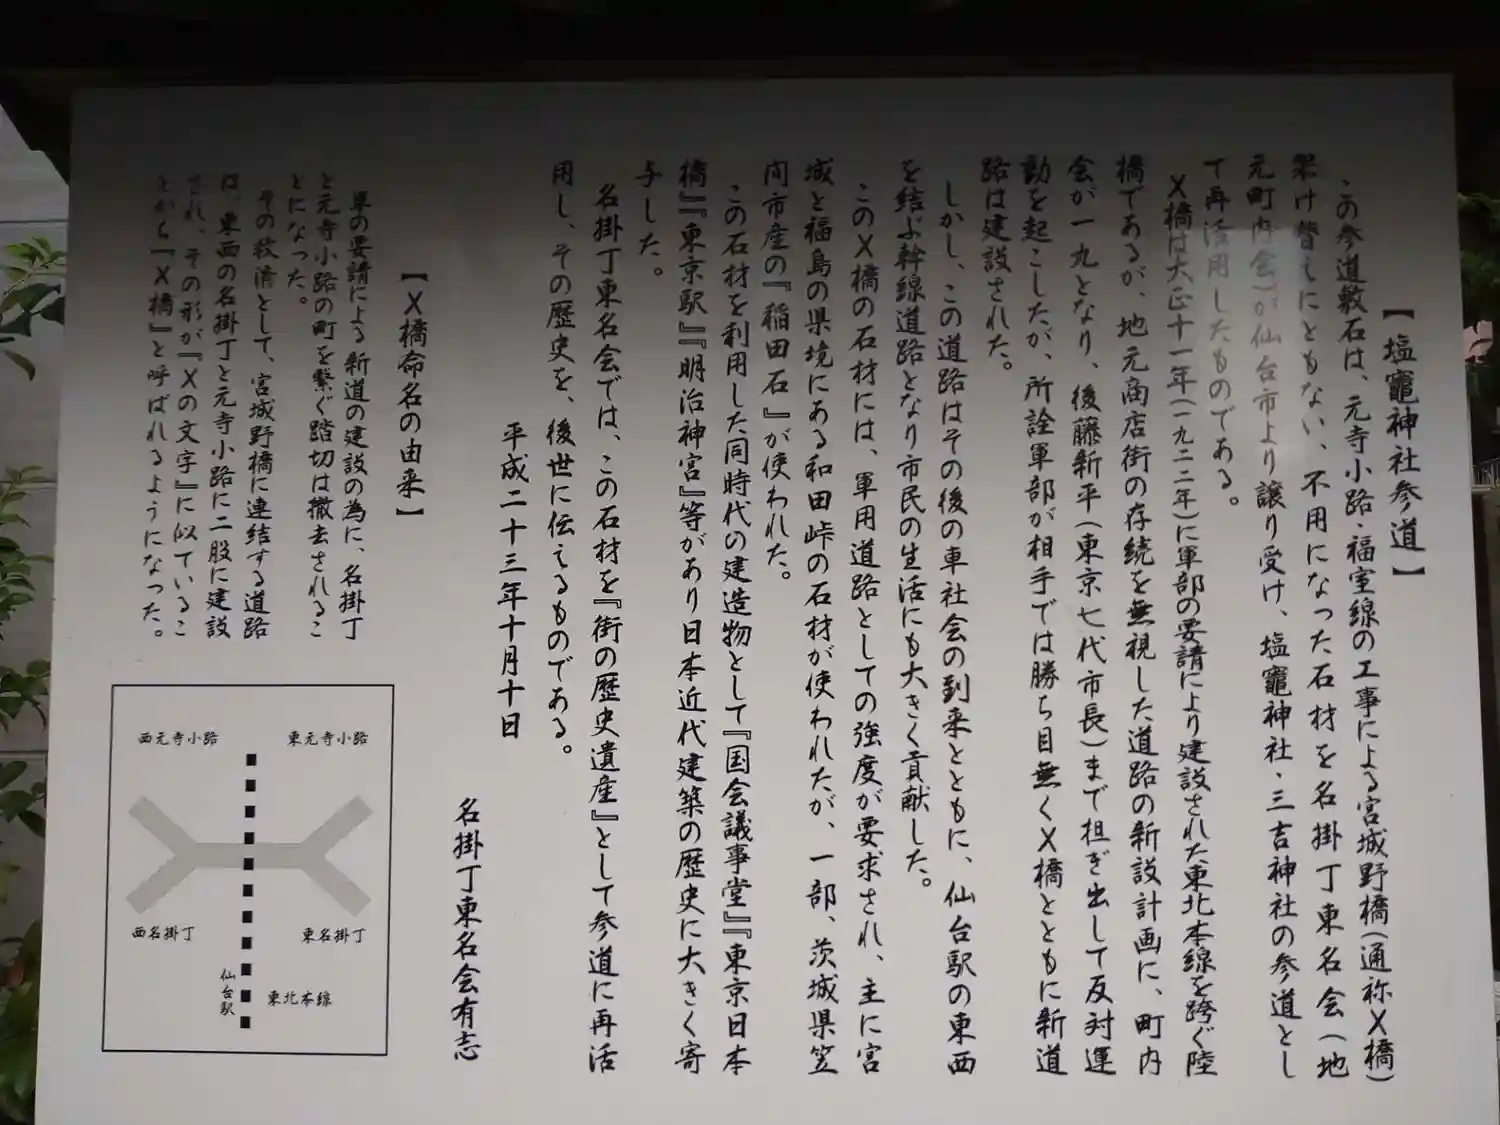 【塩竈神社参道】
この参道敷石は、元寺小路・福室線の工事による宮城野橋(通称X橋)
架け替えにともない、不用になった石材を名掛丁東名会(地
元町内会)が仙台市より譲り受け、塩竈神社・三吉神社の参道とし
て再活用したものである。
X橋は大正十一年(一九二二年)に軍部の要請により建設された東北本線を跨ぐ陸
橋であるが、地元商店街の存続を無視した道路の新設計画に、町内
会が一丸となり、後藤新平(東京七代市長)まで担ぎ出して反対運
動を起こしたが、所詮軍部が相手では勝ち目無くX橋とともに新道
路は建設された。
しかし、この道路はその後の車社会の到来とともに、仙台駅の東西
を結ぶ幹線道路となり市民の生活にも大きく貢献した。
このX橋の石材には、軍用道路としての強度が要求され、主に宮
城と福島の県境にある和田峠の石材が使われたが、一部、茨城県笠
間市産の『稲田石』が使われた。
この石材を利用した同時代の建造物として『国会議事堂』『東京日本
橋』『東京駅』『明治神宮』等があり日本近代建築の歴史に大きく寄
与した。
名掛丁東名会では、この石材を『街の歴史遺産』として参道に再活
用し、その歴史を、後世に伝えるものである。
平成二十三年十月十日
名掛丁東名会有志
【X橋命名の由来】
軍の要請による新道の建設の為に、名掛丁
と元寺小路の町を繋ぐ踏切は撤去されるこ
とになった。
その救済として、宮城野橋に連結する道路
は、東西の名掛丁と元寺小路に二股に建設
され、その形が『Xの文字』に似ているこ
とから『X橋』と呼ばれるようになった。
西元寺小路
東元寺小路
西名掛丁
東名掛丁
仙台駅
東北本線